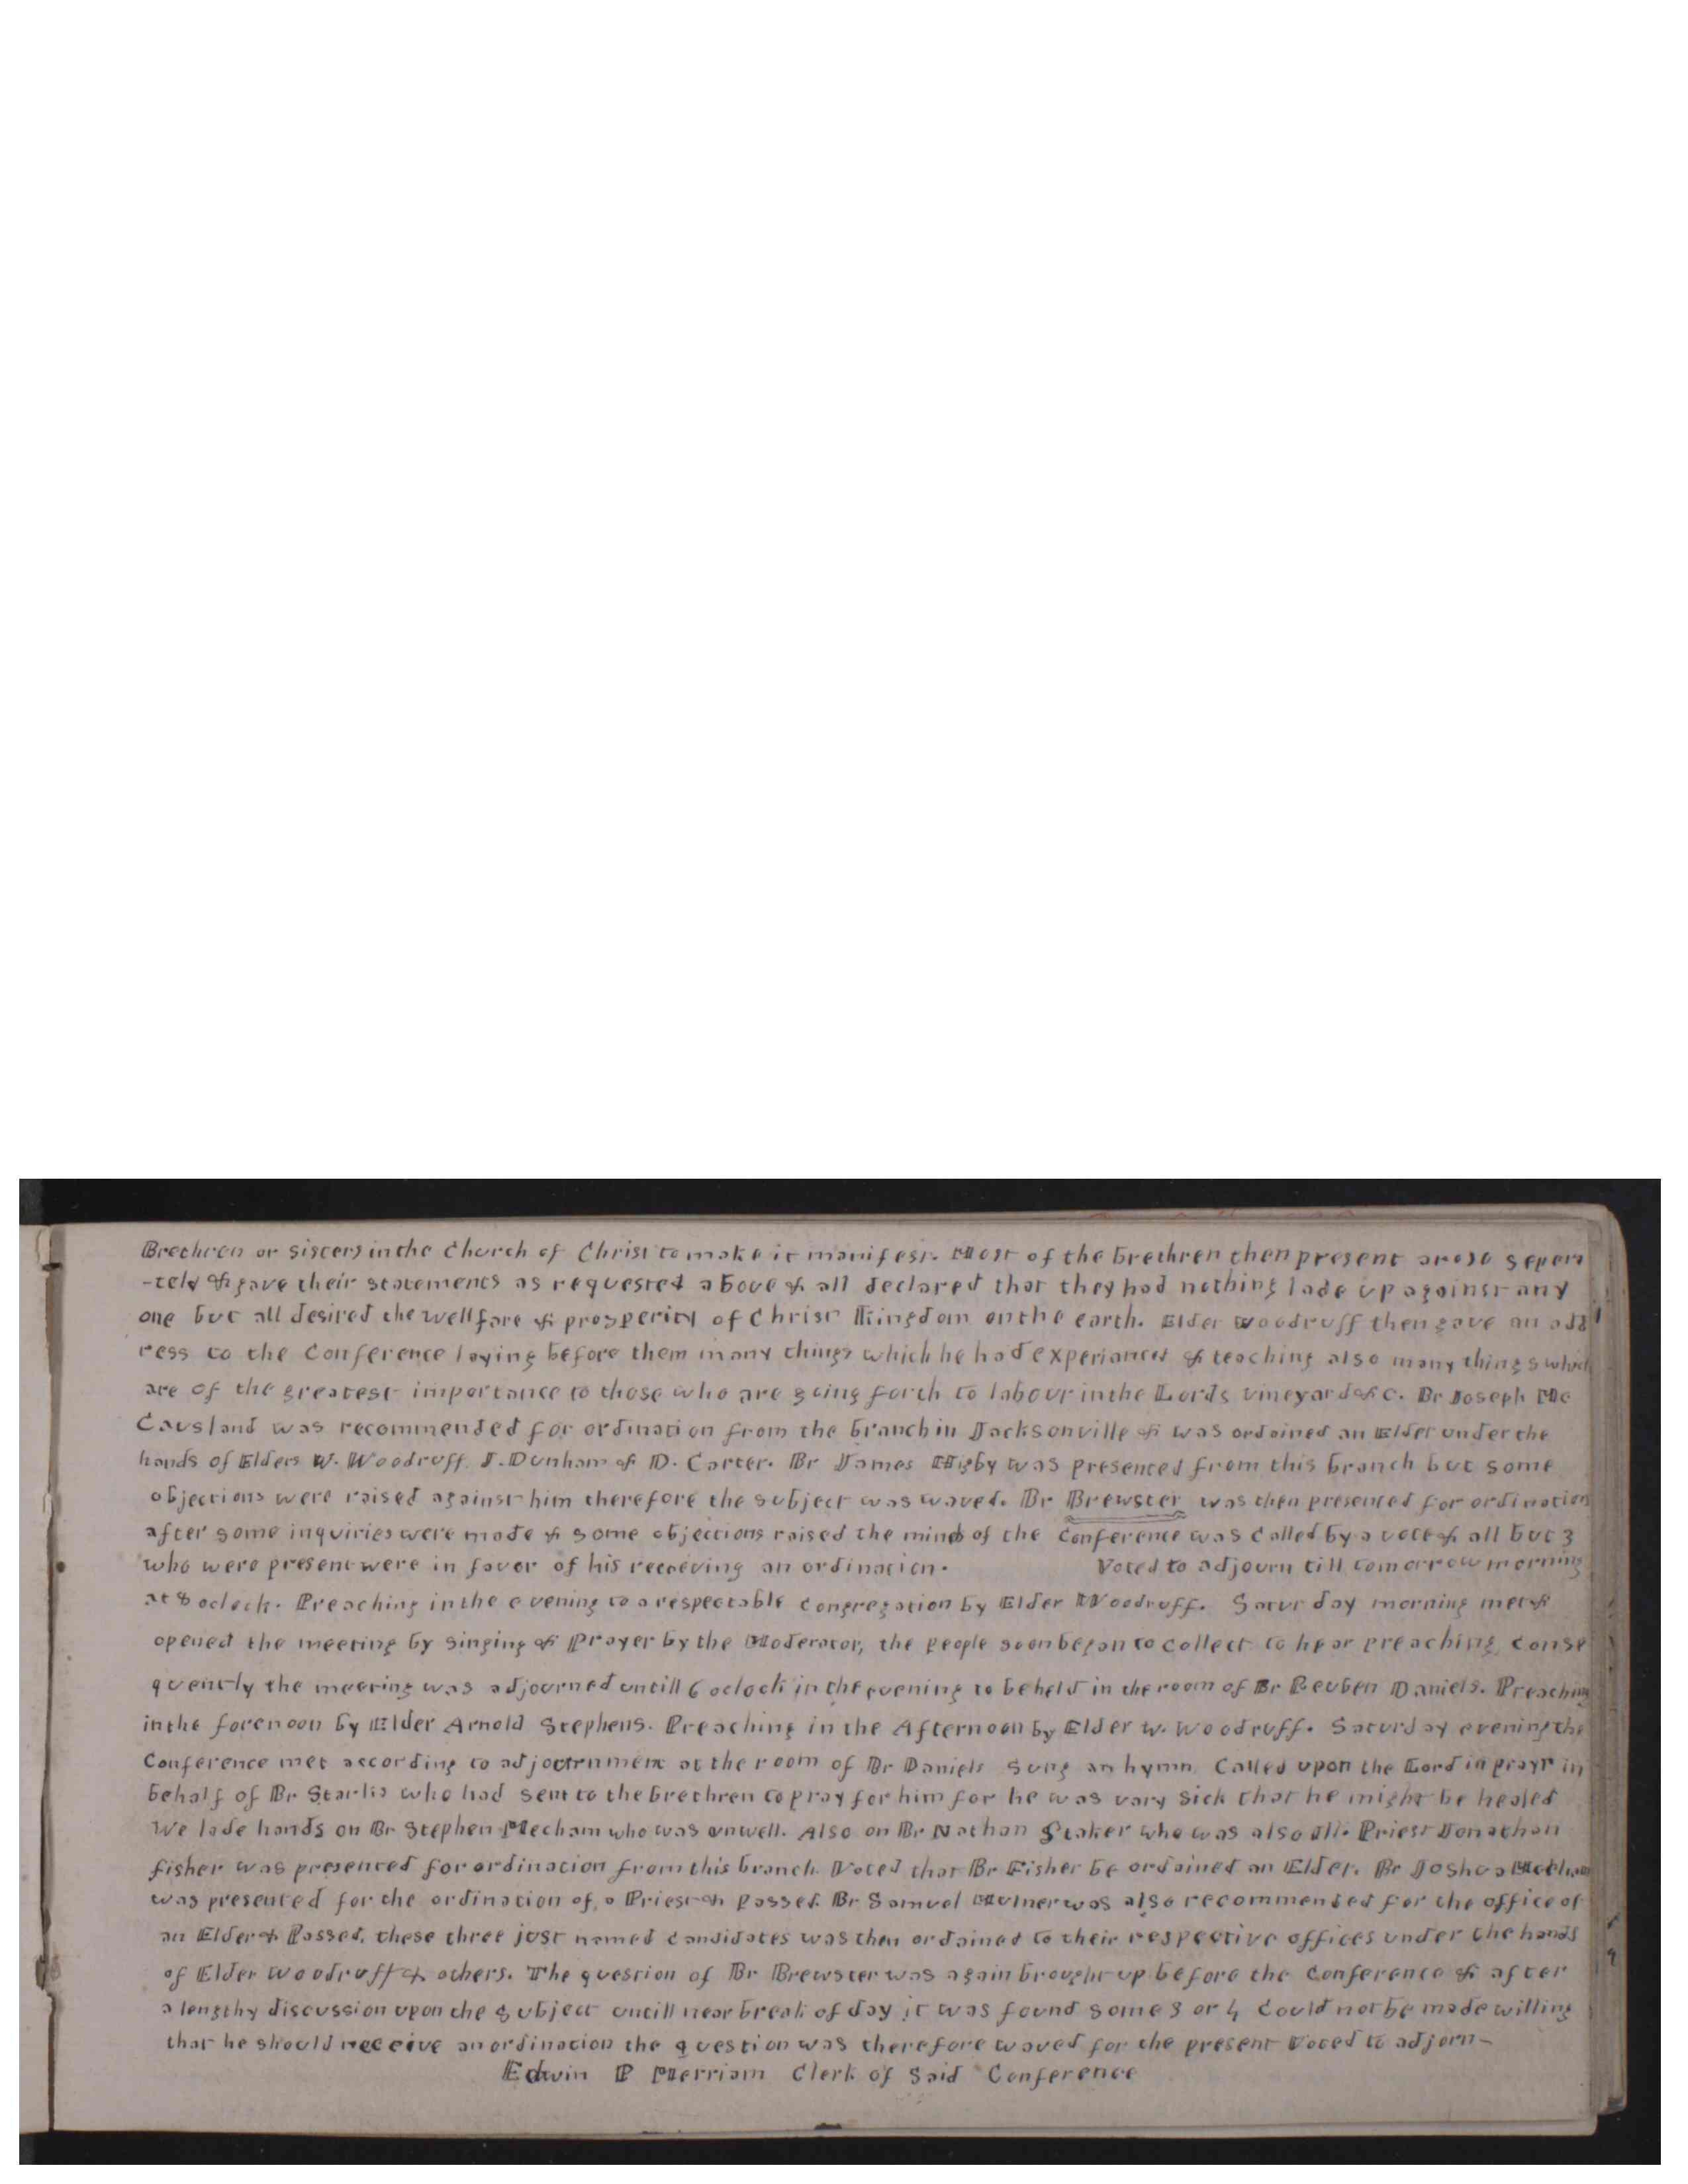 Brethren or sisters in the Church of Christ to make it manifest. Most of the brethren then present arose sepera
-tely & gave their statements as requested above & all declared that they had nothing lade up against any
one but all desired the wellfare & prosperity of Christ Kingdom on the earth. Elder Woodruff then gave an add
ress to the Conference laying before them many things which he had experianced & teaching also many things which
are of the greatest importance to those who are going forth to labour in the Lords vineyard &c. Br Joseph Mc
Causland was recommended for ordination from the branch in Jacksonville & was ordained an Elder under the
hands of Elders W. Woodruff J. Dunham & D. Carter. Br James Higby was presented from this branch but some
objections were raised against him therefore the subject was waved. Br Brewster was then presented for ordination
after some inquiries were made & some objections raised the minds of the Conference was called by a vote & all but 3
who were present were in favor of his receeving an ordination. Voted to adjourn till tomorrow morning
at 8 oclock. Preaching in the evening to a respectable congregation by Elder Woodruff. Saturday morning met &
opened the meeting by singing & Prayer by the Moderator, the people soon began to collect to hear preaching, conse
quently the meeting was adjourned untill 6 oclock in the evening to be held in the room of Br Reuben Daniels. Preaching
in the forenoon by Elder Arnold Stephens. Preaching in the Afternoon by Elder W. Woodruff. Saturday evening the
Conference met according to adjournment at the room of Br Daniels Sung an hymn. Called upon the Lord in prayr in
behalf of Br who had sent to the brethren to pray for him for he was vary sick that he might be healed
We lade hands on Br Stephen Mecham who was unwell. Also on Br Nathan Staker who was also ill. Priest Jonathan
fisher was presented for ordination from this branch. Voted that Br Fisher be ordained an Elder. Br Joshua Mecham
was presented for the ordination of a Priest & passed. Br Samuel Mulner was also recommended for the office of
an Elder & Passed, these three just named candidates was then ordained to their respective offices under the hands
of Elder Woodruff & others. The question of Br Brewster was again brought up before the Conference & after
a lengthy discussion upon the subject untill near break of day it was found some 3 or 4 could not be made willing
that he should receeive an ordination the question was therefore waved for the present Voted to adjorn-
Edwin P Merriam Clerk of Said Conference